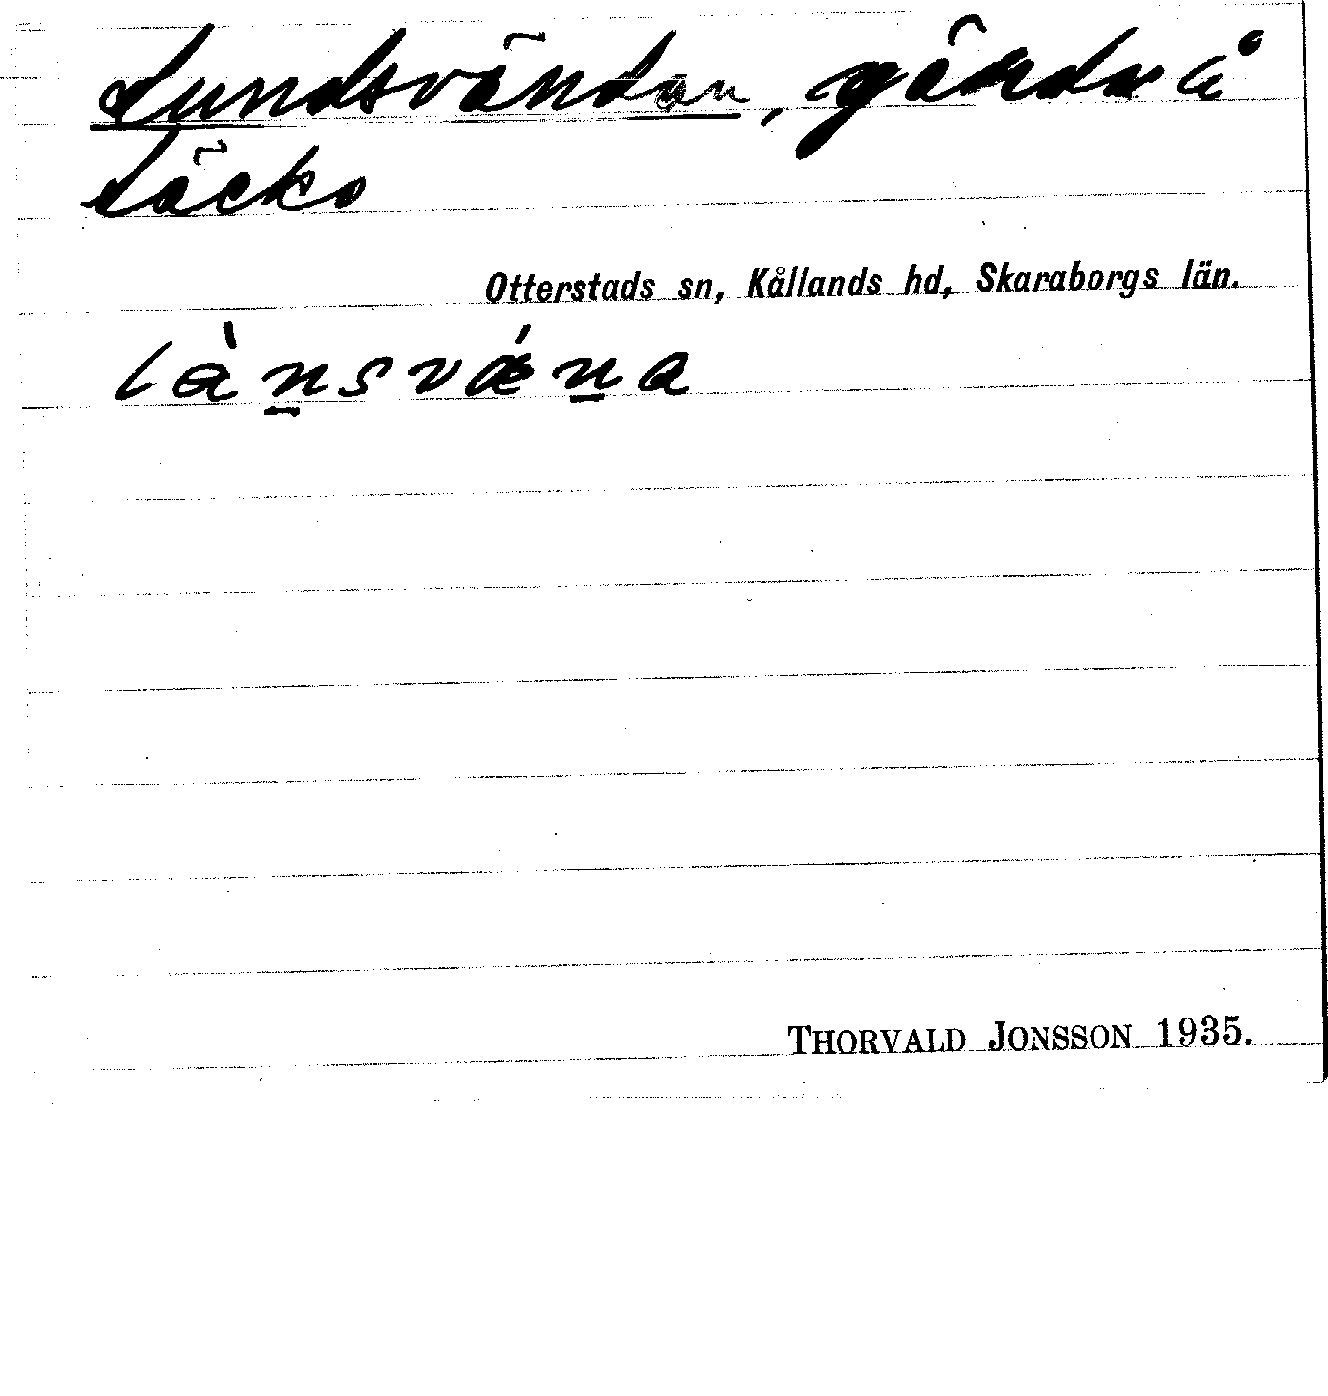 Lundsvändan, gärde å
Läckö
Otterstads sn, Kållands hd, Skaraborgs län.
làn̲svǽn̲a
THORVALD JONSSON 1935.